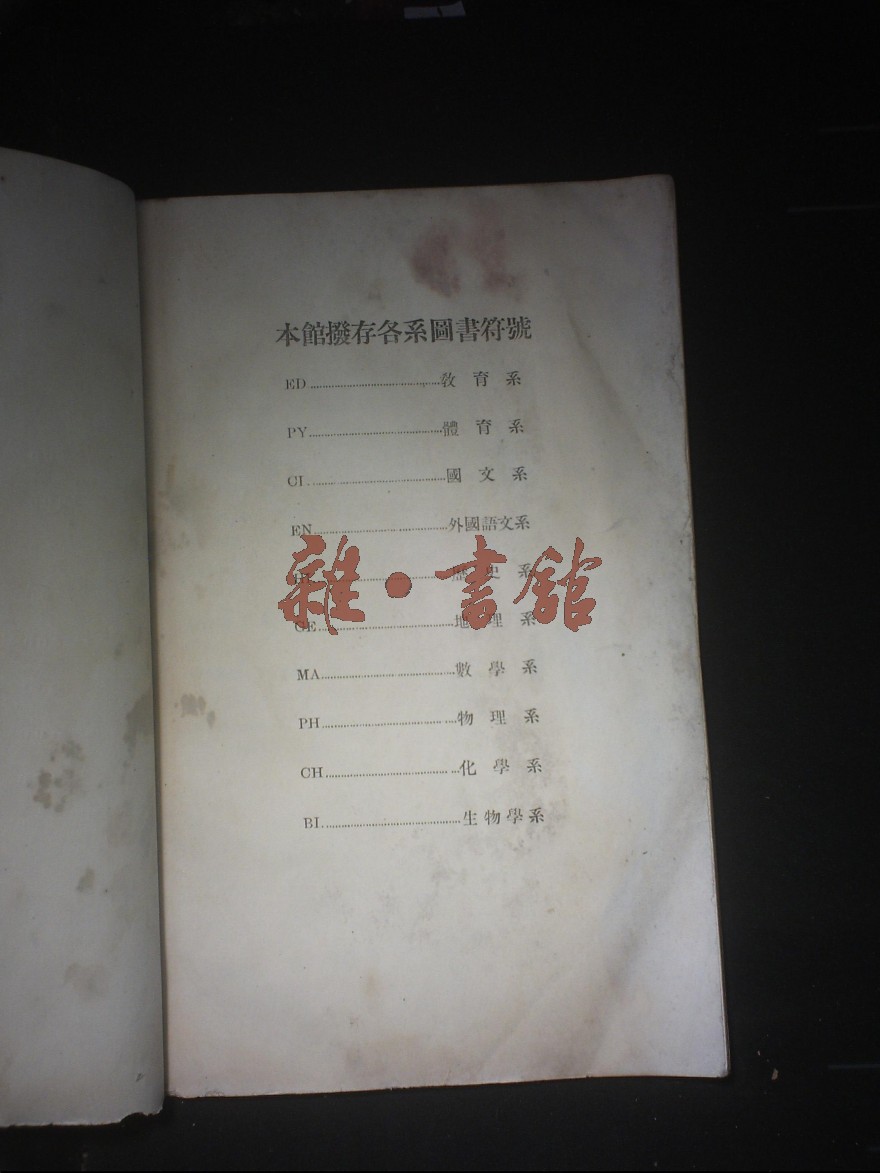 本館撥存各系圖書符號
ED……教育系
PY……體育系
CI……國文系
EN……外國語文系
……歷史系
GE……地理系
MA……數學系
PH……物理系
CH……化學系
BI……生物學系
雜·書館